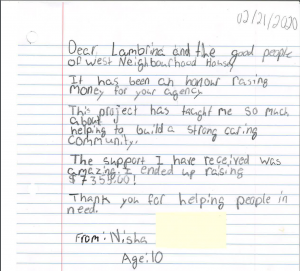 02/21/2020
Dear Lambrina and the good people
of West Neighbourhood House,
It has been an honour rasing
money for your agency.
This project has taught me so much
about
helping to build a strong caring
community.
The support I have received was
amazing. I ended up rasing
$7355.00!
Thank you for helping people in
need.
From: Nisha
Age: 10